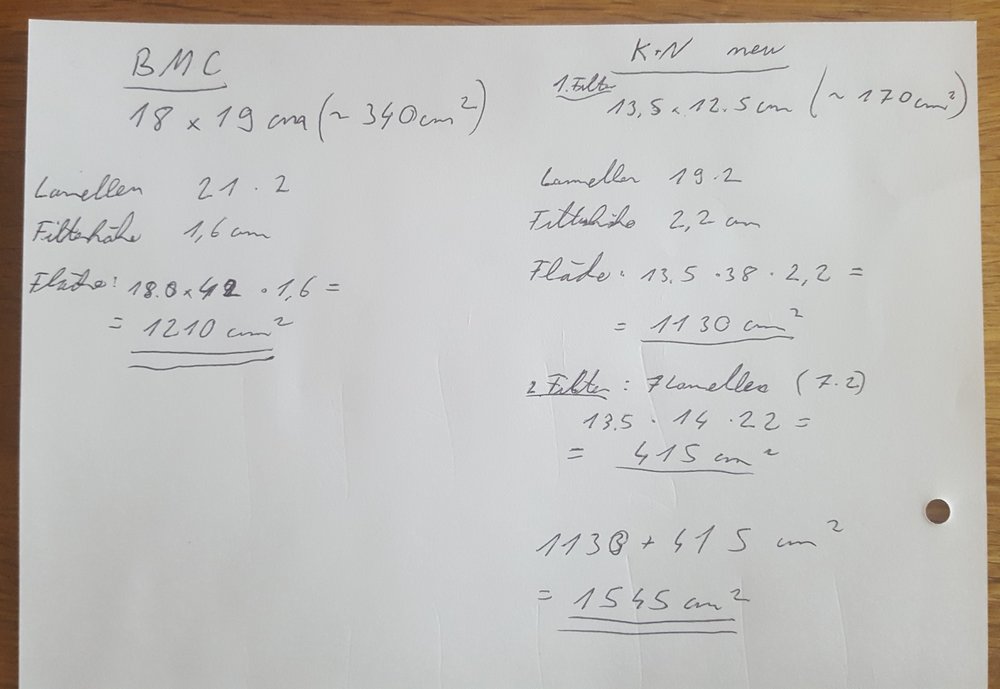 BMC
18 x 19 cm (~ 340cm²)
Lamellen 21 . 2
Filterhöhe 1,6 cm
Fläche: 18.0 x 42 . 1,6 =
= 1210 cm²
K+N new
1. Filter
13,5 x 12.5 cm (~ 170cm²)
Lamellen 19.2
Filterhöhe 2,2 cm
Fläche: 13.5 . 38 . 2,2 =
= 1130 cm²
2 Filter : 7 Lamellen (7.2)
13.5 . 14 . 22 =
= 415 cm²
1130 + 415 cm²
= 1545 cm²